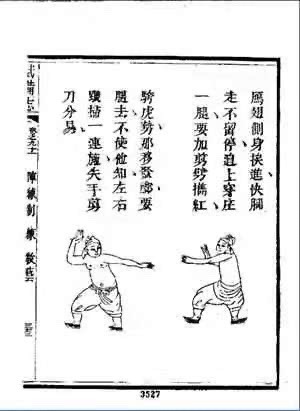 鴈翅側身挨進快腿
走不留停追上穿庄
一腿要加剪劈推紅
騎虎勢那移發脚要
腿去不使他知左右
跟掃一連施失手剪
刀分易
陣練制 練
3527